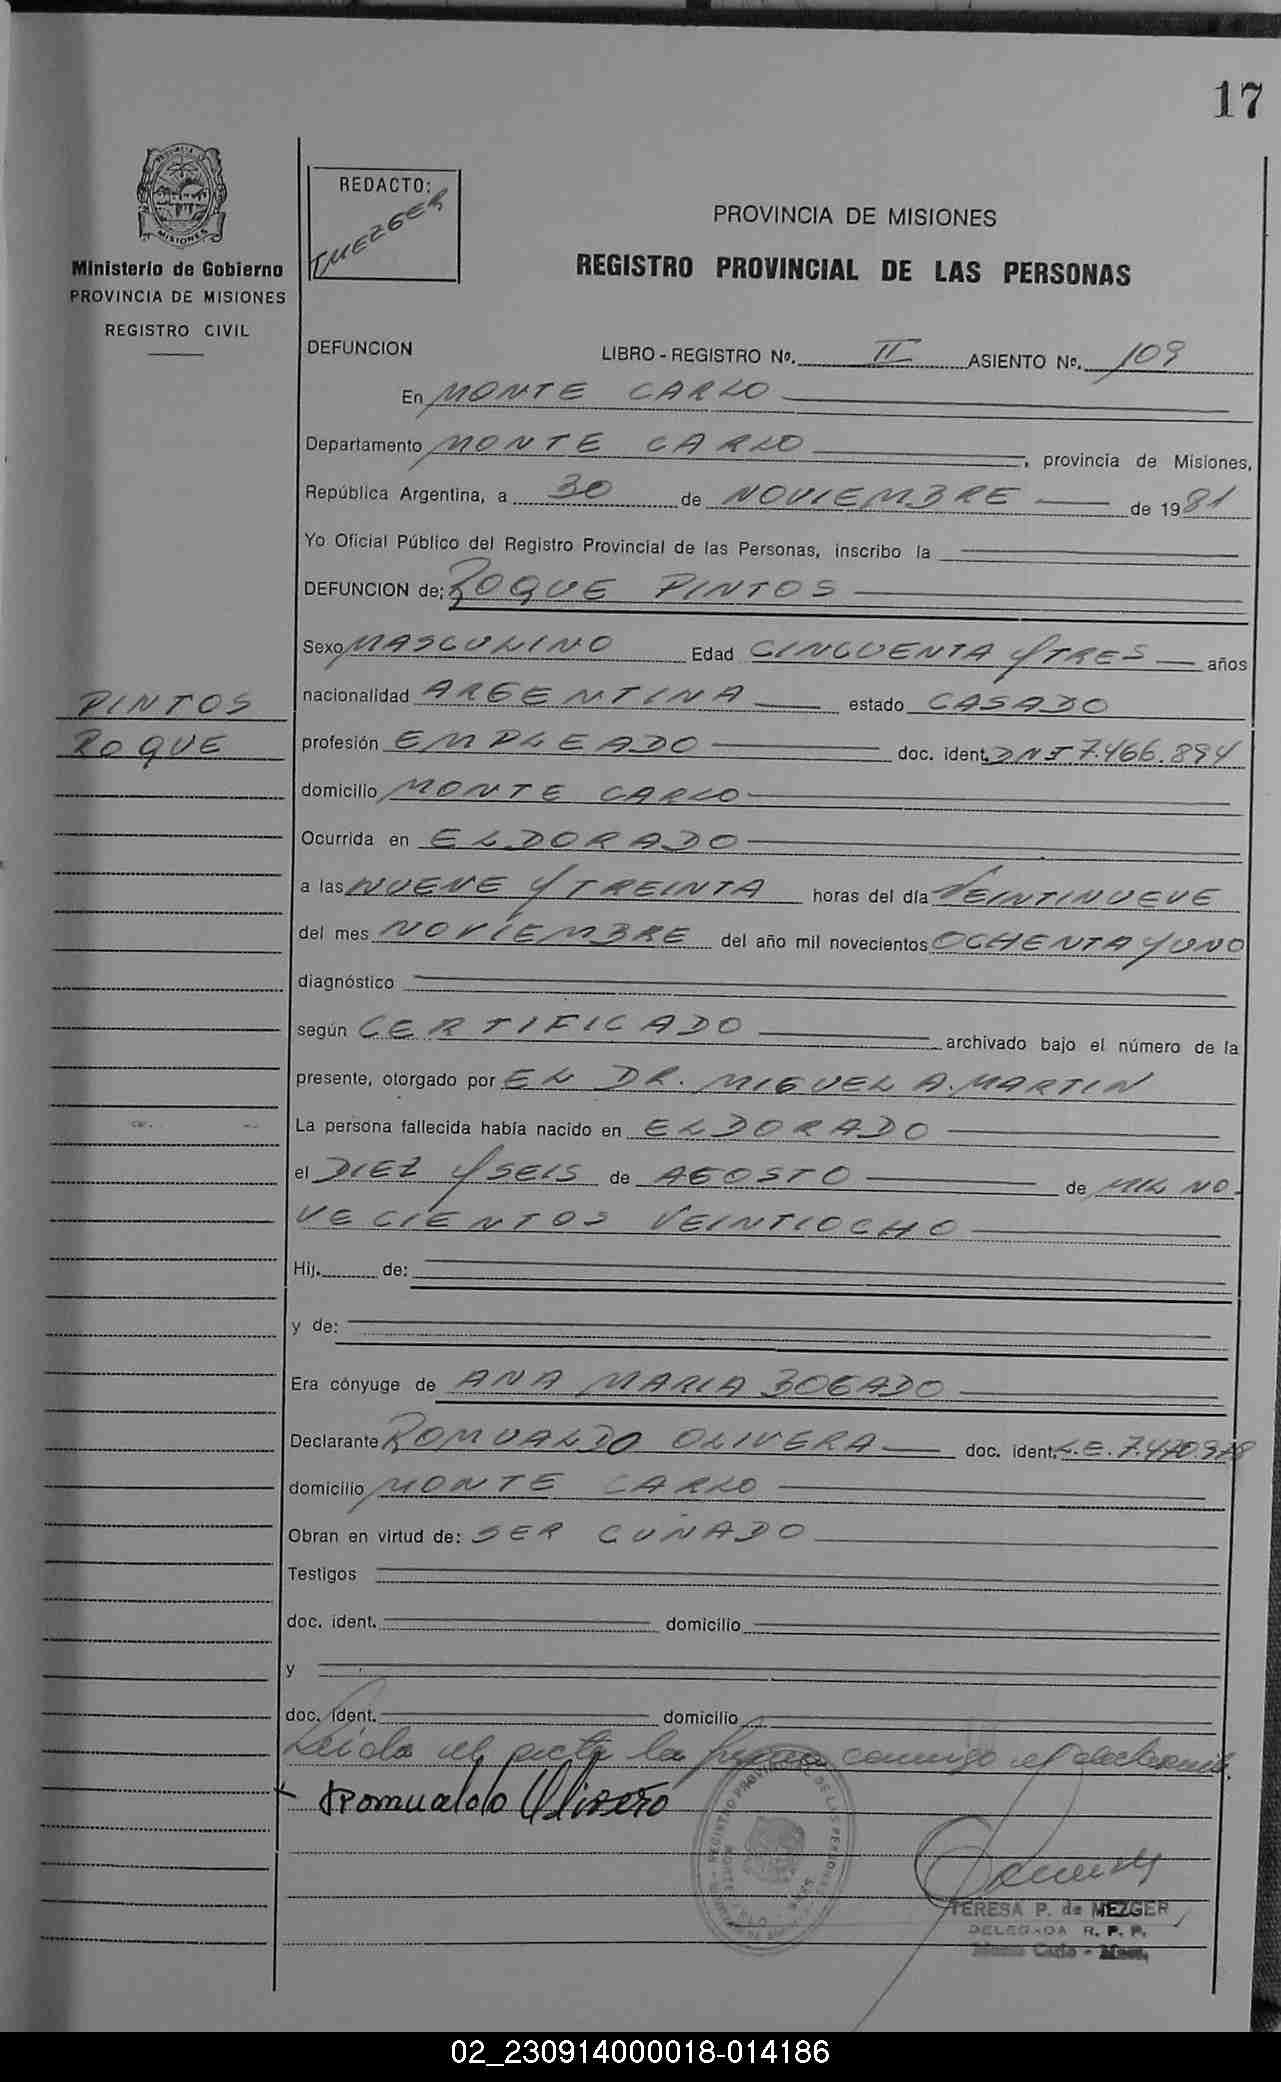 17
REDACTO:
T MEZGER
MISIONES
Ministerio de Gobierno
PROVINCIA DE MISIONES
REGISTRO CIVIL
PROVINCIA DE MISIONES
REGISTRO PROVINCIAL DE LAS PERSONAS
DEFUNCION LIBRO - REGISTRO Nº. II ASIENTO Nº. 109
En MONTE CARLO
Departamento MONTE CARLO, provincia de Misiones,
República Argentina, a 30 de NOVIEMBRE de 1981
Yo Oficial Público del Registro Provincial de las Personas, inscribo la
DEFUNCION de: ROQUE PINTOS
Sexo MASCULINO Edad CINCUENTA Y TRES años
PINTOS
ROQUE
nacionalidad ARGENTINA estado CASADO
profesión EMPLEADO doc. ident. DNI 7.466.894
domicilio MONTE CARLO
Ocurrida en ELDORADO
a las NUEVE Y TREINTA horas del día VEINTINUEVE
del mes NOVIEMBRE del año mil novecientos OCHENTA Y UNO
diagnóstico
según CERTIFICADO archivado bajo el número de la
presente, otorgado por EL DR. MIGUEL A. MARTIN
La persona fallecida había nacido en ELDORADO
el DIEZ Y SEIS de AGOSTO de MIL NO-
VECIENTOS VEINTIOCHO
Hij. de:
y de:
Era cónyuge de ANA MARIA BOGADO
Declarante ROMUALDO OLIVERA doc. ident. L.E. 7.470.978
domicilio MONTE CARLO
Obran en virtud de: SER CUÑADO
Testigos
doc. ident. domicilio
y
doc. ident. domicilio
Leida el acta la firma conmigo el declarante.
Romualdo Olivero
TERESA P. de MEZGER
DELEGADA R. P. P.
Monte Carlo - Mnes.
02_230914000018-014186